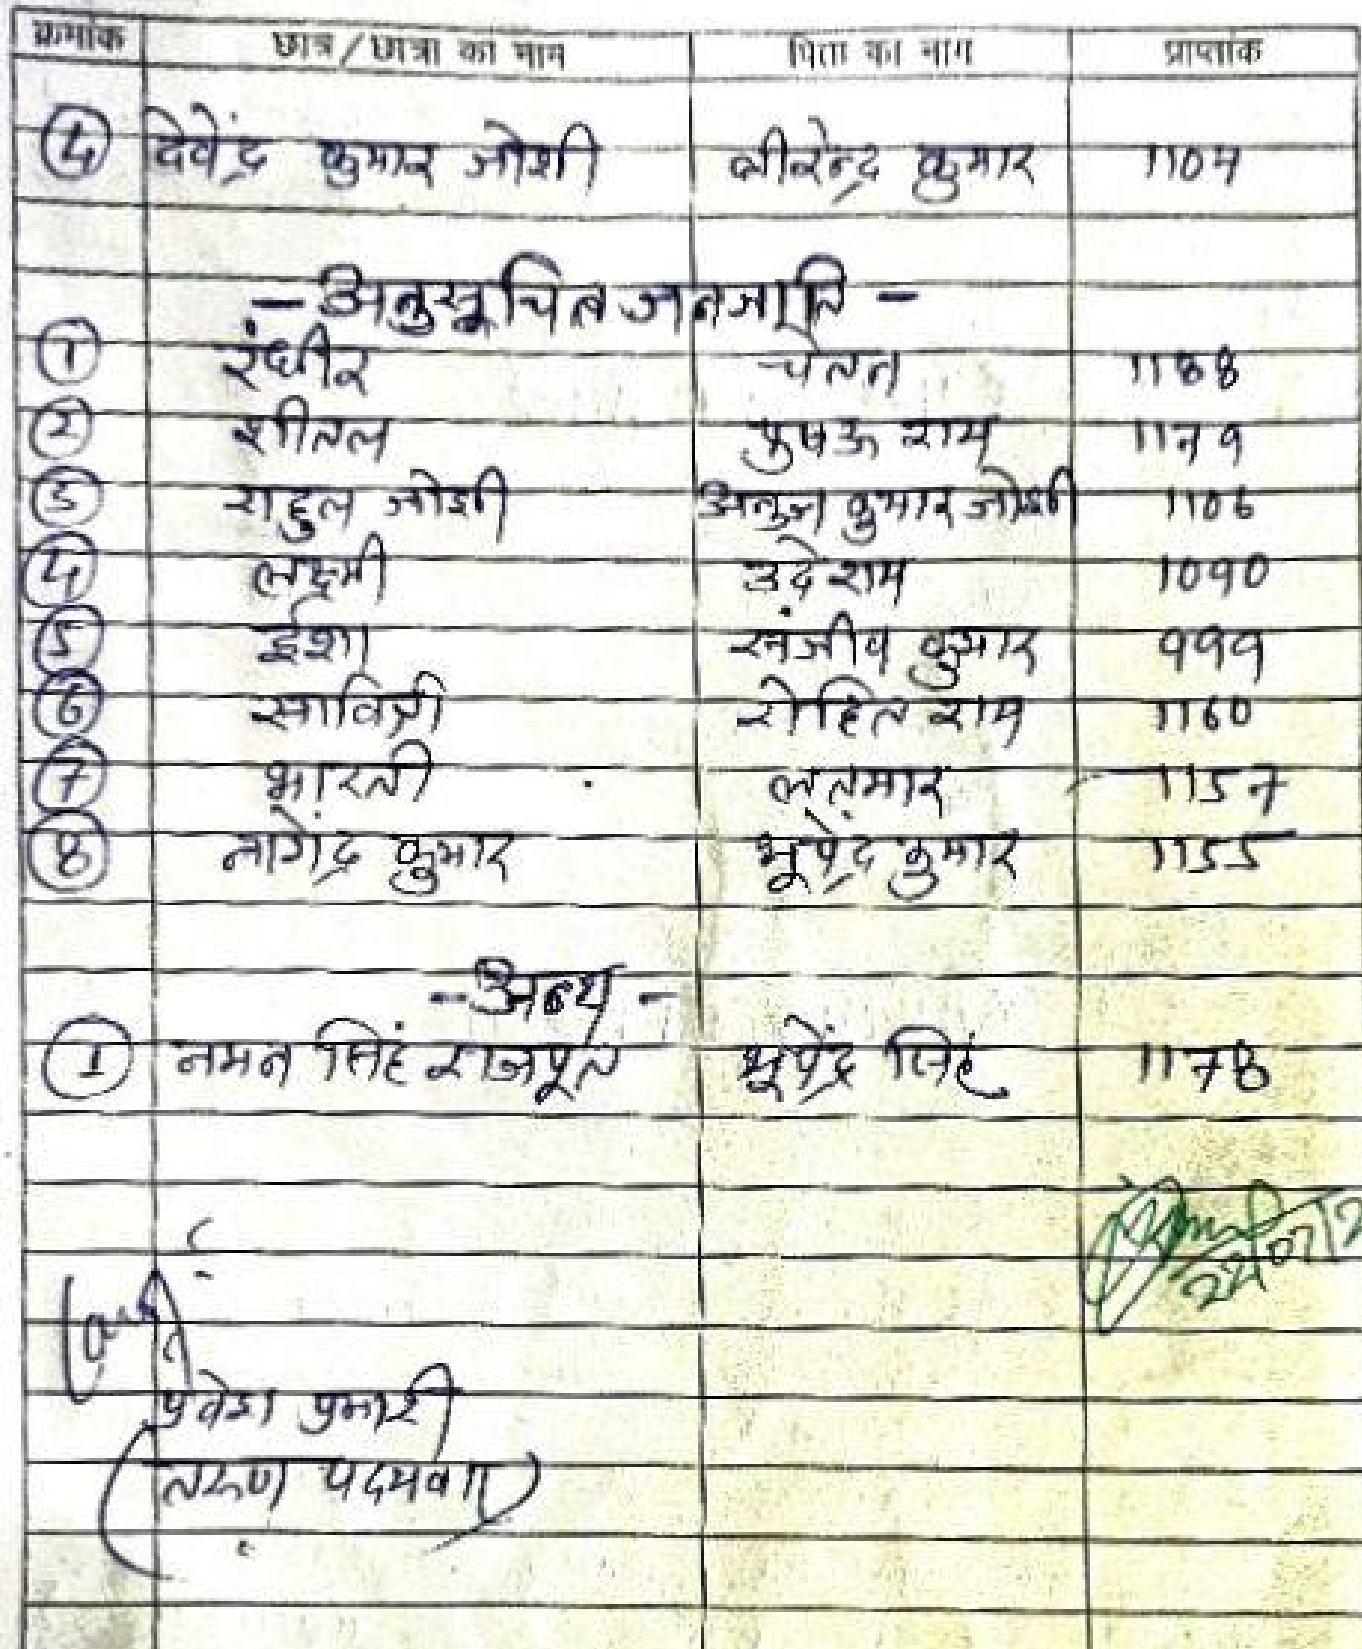 क्रमांक छात्र/छात्रा का नाम पिता का नाम प्राप्तांक
4 देवेंद्र कुमार जोशी वीरेन्द्र कुमार 1104
- अनुसूचित जनजाति -
1 रंधीर चेतन 1188
2 शीतल राम 1179
3 राहुल जोशी कुमार जोशी 1106
4 लक्ष्मी उदे राम 1090
5 ईशा संजीव कुमार 999
6 सावित्री रोहित राम 1160
7 भारती 1157
8 नागेंद्र कुमार भूपेंद्र कुमार 1155
- अन्य -
1 नमन सिंह राजपूत भूपेंद्र सिंह 1178
प्रवेश प्रभारी